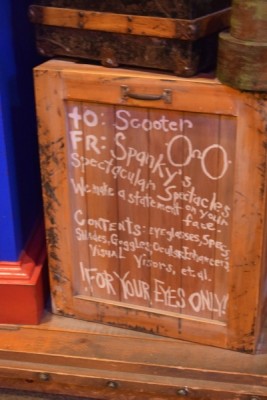 TO: Scooter
FR: Spanky's
Spectacular Spectacles
We make a statement on your
face.
CONTENTS: eyeglasses, Specs,
Shades, Goggles, Ocular Enhancers,
Visual Visors, et.al.
!FOR YOUR EYES ONLY!